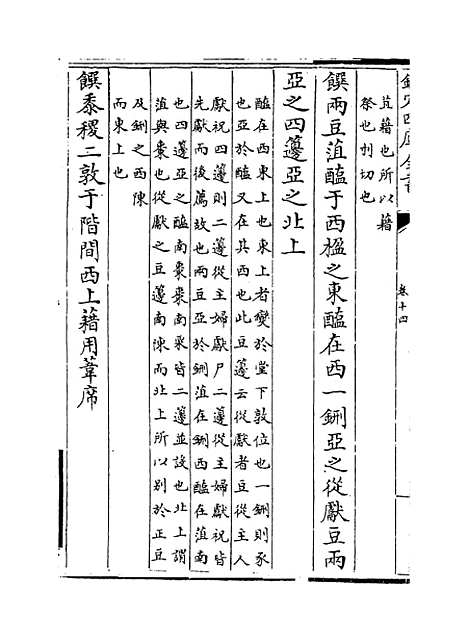 欽定四庫全書
卷十四
苴藉也所以藉
祭也刌切也
饌兩豆葅醢于西楹之東醢在西一鉶亞之從獻豆兩
亞之四籩亞之北上
醢在西東上也東上者變於堂下敦位也一鉶則豕
也亞於醢又在其西也此豆籩云從獻者豆從主人
獻祝四籩則二籩從主婦獻尸二籩從主婦獻祝皆
先獻而後薦故也兩豆亞於鉶葅在鉶西醢在葅南
也四籩亞之醢南棗棗南栗皆二籩並設也北上謂
葅與棗也從獻之豆籩南陳而北上所以别於正豆
及鉶之西陳
而東上也
饌黍稷二敦于階間西上藉用葦席